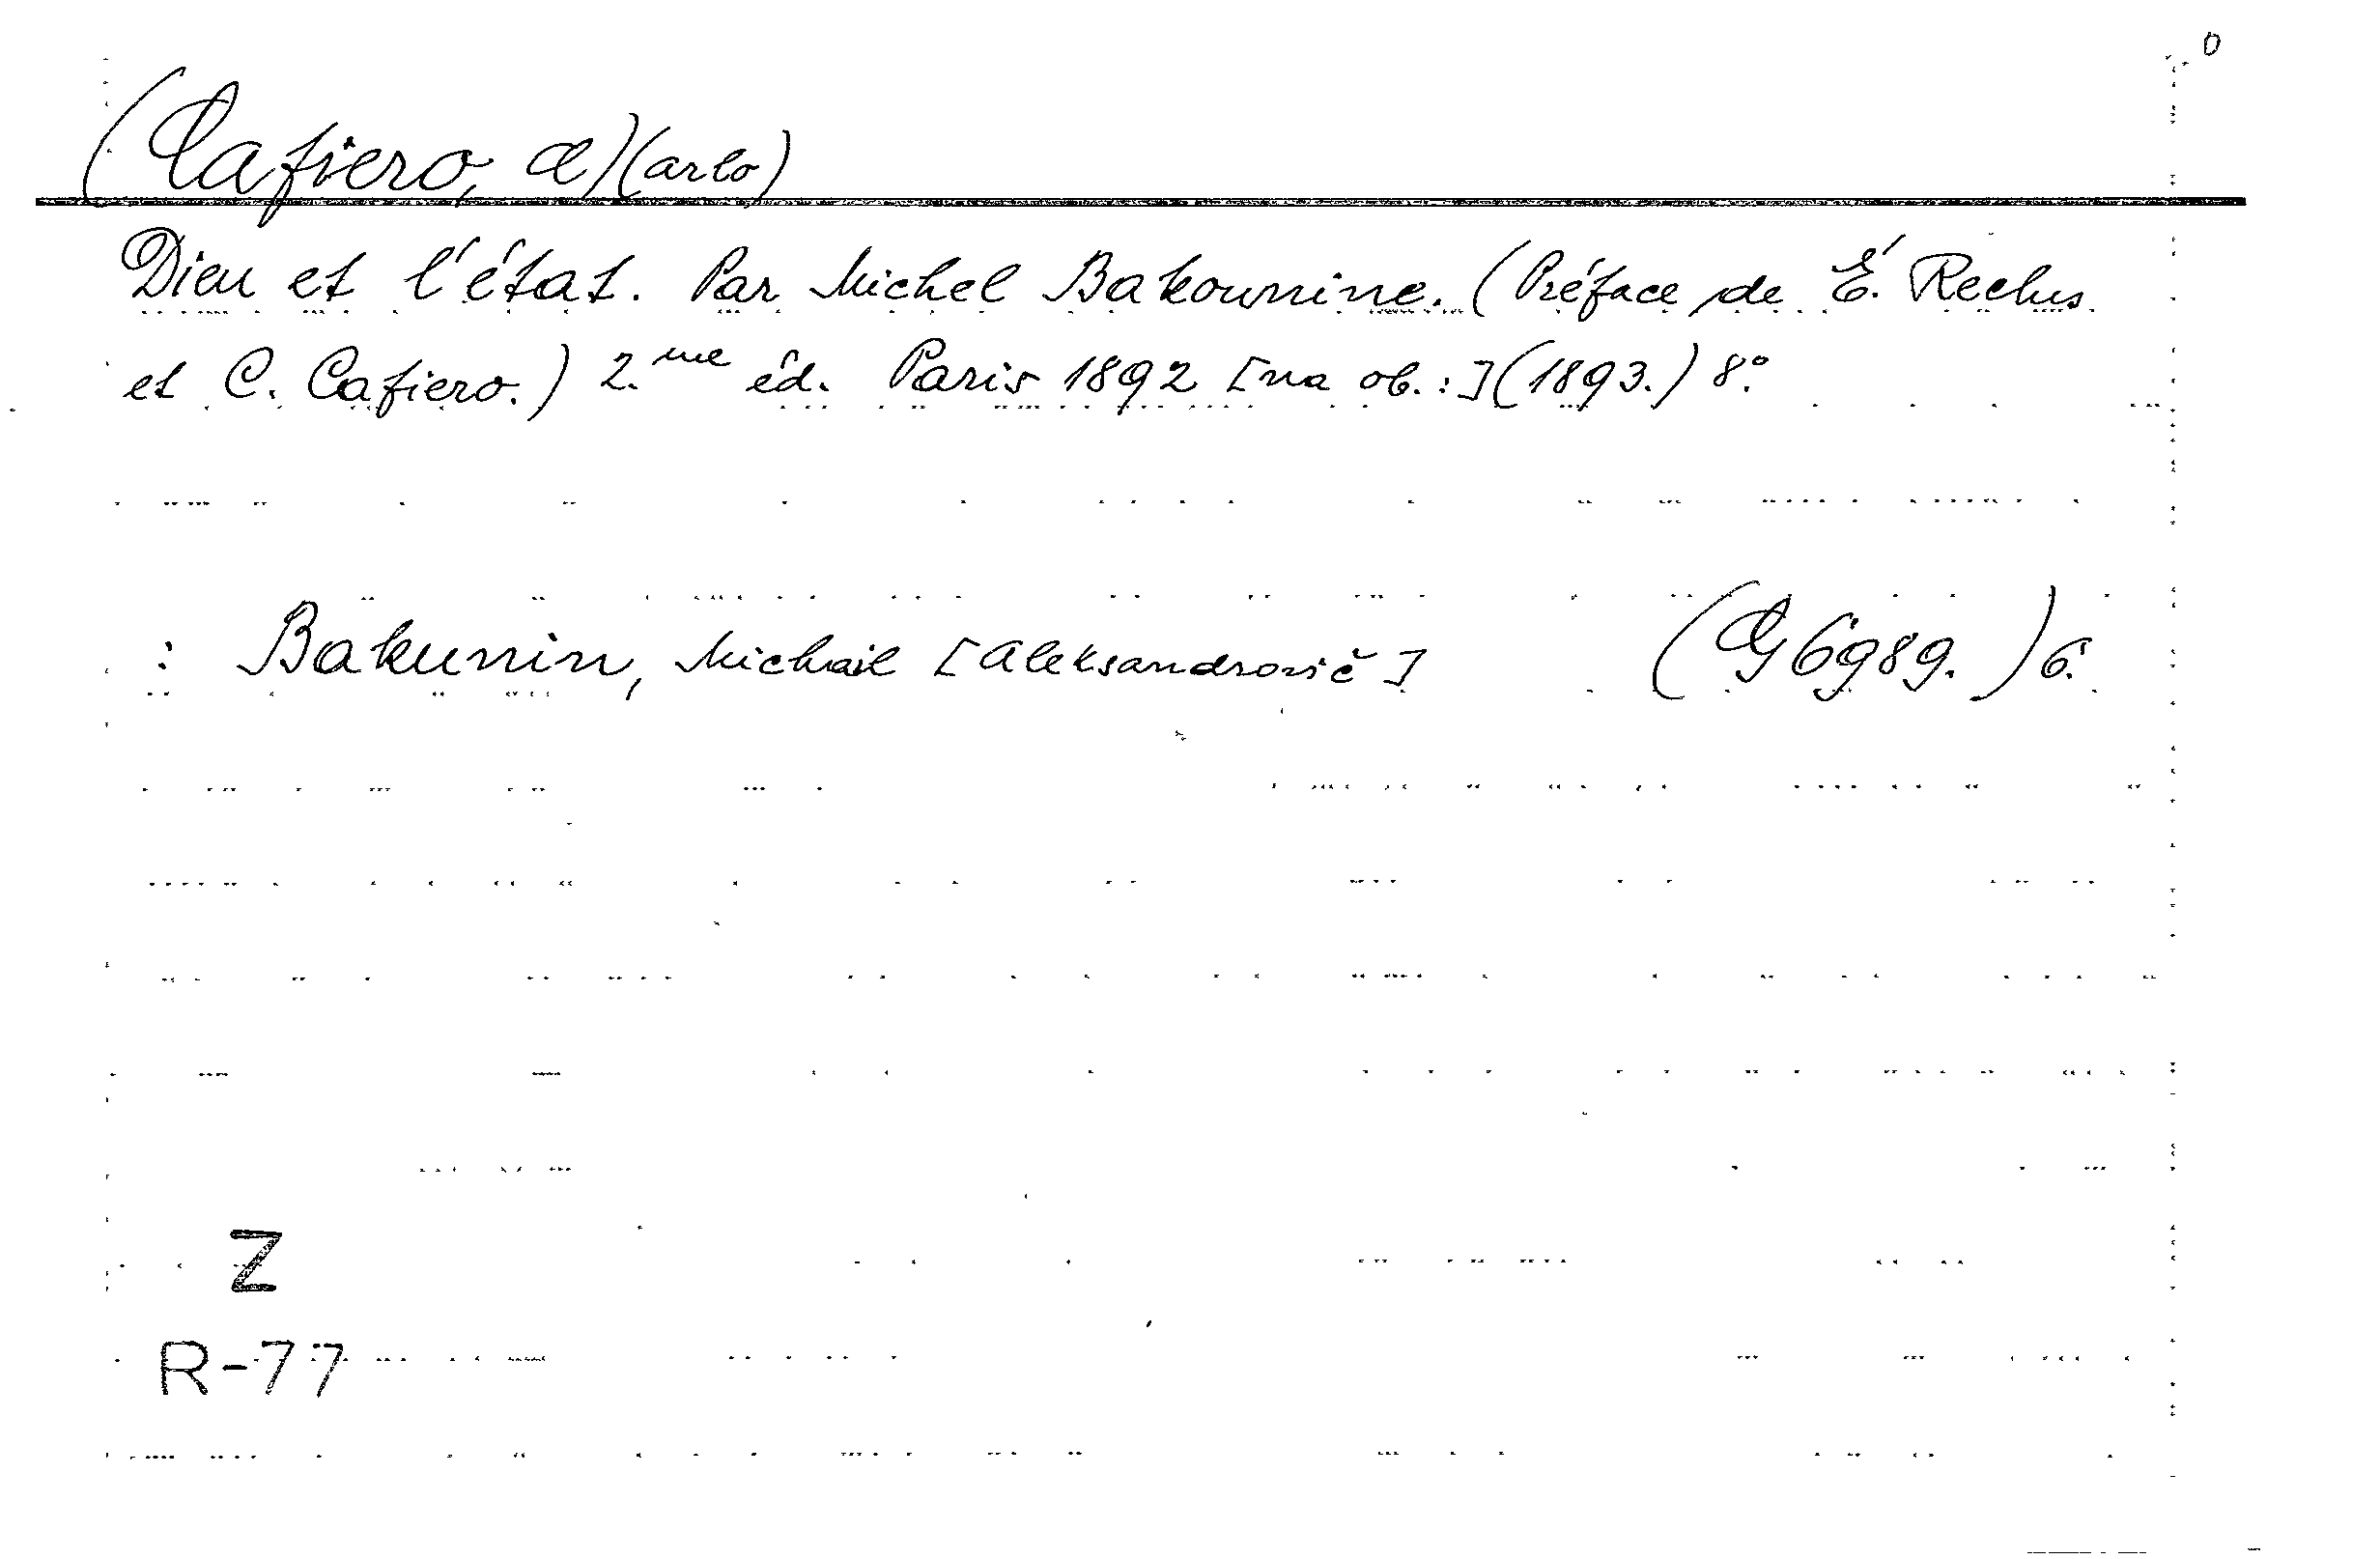 0
(Cafiero, C)(arlo)
Dieu et l'état. Par Michel Bakounine. (Préface de É. Reclus
et C. Cafiero.) 2.me éd. Paris 1892 [na ob.:] (1893.) 8°.
: Bakunin, Michail [Aleksandrovič] (G 6989.) 6.
Z
R-77